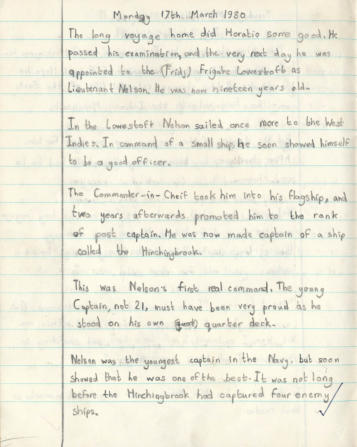 Monday 17th. March 1980
The long voyage home did Horatio some good. He
passed his examination, and the very next day he was
appointed to the (Frids) Frigate Lowestoft as
Lieutenant Nelson. He was now nineteen years old.
In the Lowestoft Nelson sailed once more to the West
Indies. In command of a small ship he soon showed himself
to be a good officer.
The Commander-in-Cheif took him into his flagship, and
two years afterwards promoted him to the rank
of post captain. He was now made captain of a ship
called the Hinchingbrook.
This was Nelson's first real command. The young
Captain, not 21, must have been very proud as he
stood on his own quarter deck.
Nelson was the youngest captain in the Navy, but soon
showed that he was one of the best. It was not long
before the Hinchingbrook had captured four enemy
ships.